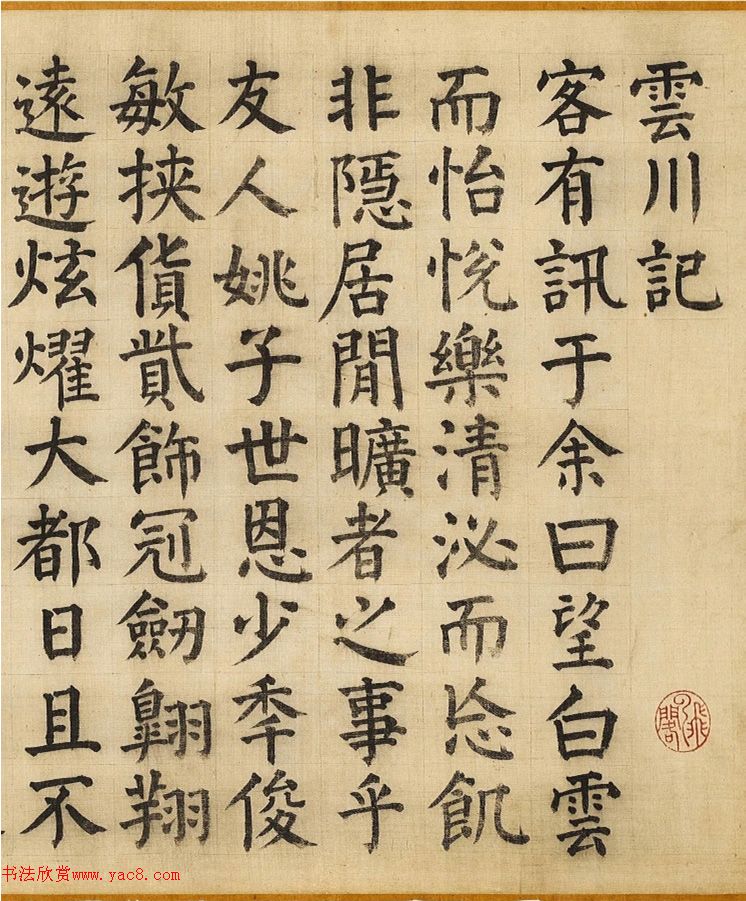 雲川記
客有訊于余曰望白雲
而怡悅樂清泌而忘飢
非隱居閒曠者之事乎
友人姚子世恩少秊俊
敏挾貨貲飾冠劒翱翔
遠遊炫燿大都日且不
书法欣赏www.yac8.com